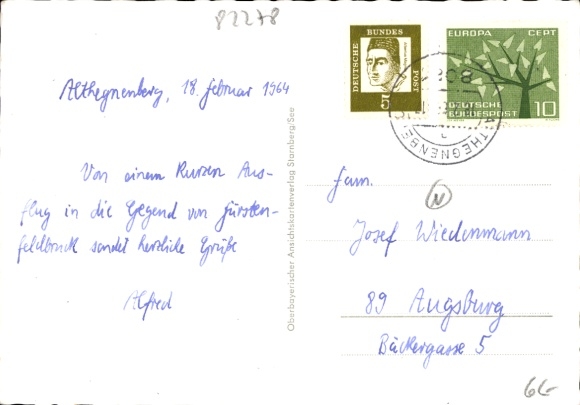 82278
Althegnenberg, 18. Februar 1964
Von einem kurzen Aus-
flug in die Gegend von Fürsten-
feldbruck sendet herzliche Grüße
Alfred
Oberbayerischer Ansichtskartenverlag Starnberg/See
DEUTSCHE BUNDES POST
5
EUROPA CEPT
DEUTSCHE
BUNDESPOST 10
Fam.
N
Josef Wiedenmann
89 Augsburg
Bäckergasse 5